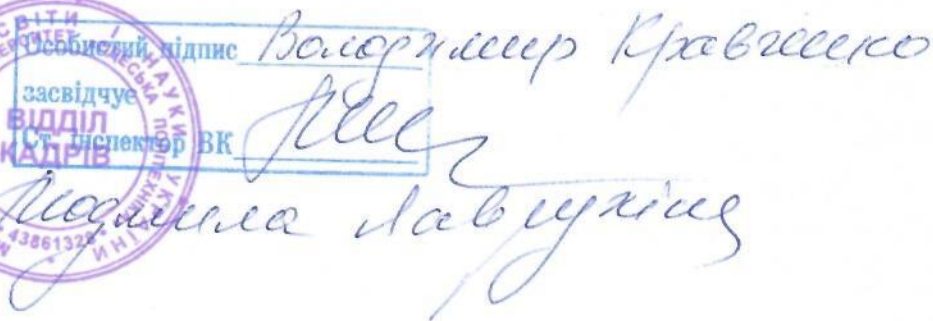 Особистий підпис Володимир Кравченко
засвідчує
Ст. інспектор ВК
Людмила Лаврухіна
ВІДДІЛ
КАДРІВ
43861328